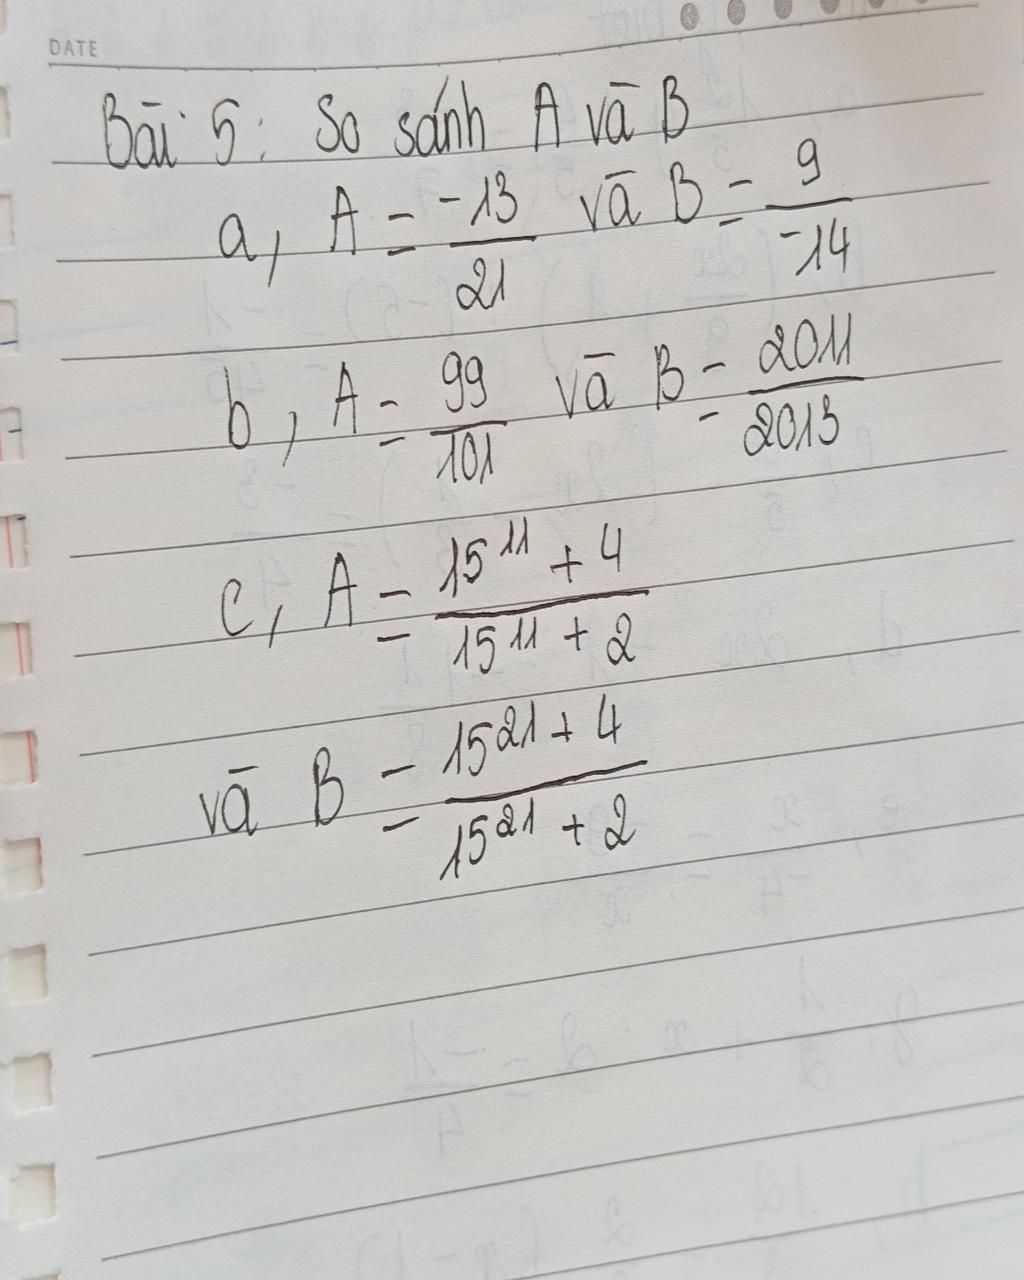 DATE
Bài 5: So sánh A và B
a, A = -13/21 và B = 9/-14
b, A = 99/101 và B = 2011/2013
c, A = 15^11 + 4/15^11 + 2
và B = 15^21 + 4/15^21 + 2